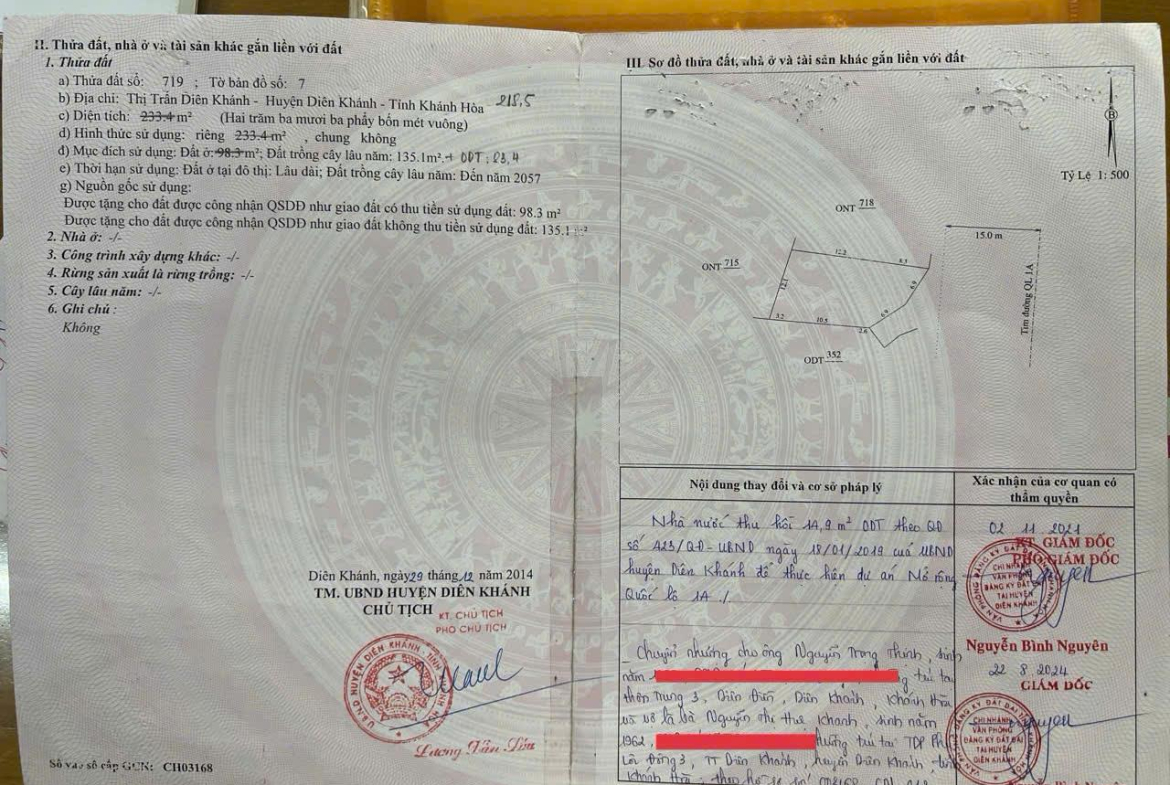 II. Thửa đất, nhà ở và tài sản khác gắn liền với đất
1. Thửa đất
a) Thửa đất số: 719 ; Tờ bản đồ số: 7
b) Địa chỉ: Thị Trấn Diên Khánh - Huyện Diên Khánh - Tỉnh Khánh Hòa
218,5
c) Diện tích: 233.4 m² (Hai trăm ba mươi ba phẩy bốn mét vuông)
d) Hình thức sử dụng: riêng 233.4 m² , chung không
đ) Mục đích sử dụng: Đất ở: 98.3 m²; Đất trồng cây lâu năm: 135.1m². + ODT: 83,4
e) Thời hạn sử dụng: Đất ở tại đô thị: Lâu dài; Đất trồng cây lâu năm: Đến năm 2057
g) Nguồn gốc sử dụng:
Được tặng cho đất được công nhận QSDĐ như giao đất có thu tiền sử dụng đất: 98.3 m²
Được tặng cho đất được công nhận QSDĐ như giao đất không thu tiền sử dụng đất: 135.1 m²
2. Nhà ở: -/-
3. Công trình xây dựng khác: -/-
4. Rừng sản xuất là rừng trồng: -/-
5. Cây lâu năm: -/-
6. Ghi chú :
Không
Diên Khánh, ngày 29 tháng 12 năm 2014
TM. UBND HUYỆN DIÊN KHÁNH
CHỦ TỊCH
KT. CHỦ TỊCH
PHÓ CHỦ TỊCH
Lương Tấn
Số vào sổ cấp GCN: CH03168
III. Sơ đồ thửa đất, nhà ở và tài sản khác gắn liền với đất
B
Tỷ Lệ 1: 500
ONT 718
15.0 m
ONT 715
12.2
8.5
12.1
6.9
6.9
Tim đường QL 1A
3.2
10.5
2.6
ODT 352
Nội dung thay đổi và cơ sở pháp lý
Xác nhận của cơ quan có
thẩm quyền
Nhà nước thu hồi 14,9 m² ODT theo QĐ
số 423/QĐ-UBND ngày 18/01/2019 của UBND
huyện Diên Khánh để thực hiện dự án Mở rộng
Quốc lộ 1A ./.
02 11 2021
KT. GIÁM ĐỐC
PHÓ GIÁM ĐỐC
CHI NHÁNH
VĂN PHÒNG
ĐĂNG KÝ ĐẤT
TẠI HUYỆN
DIÊN KHÁNH
Nguyễn Bình Nguyên
Chuyển nhượng cho ông Nguyễn Trọng Thịnh, sinh
năm
trú tại
thôn Trung 3, Diên Điền, Diên Khánh, Khánh Hòa
và vợ là bà Nguyễn Thị Thu Khanh, sinh năm
1962,
thường trú tại TDP Phú
Lộc Đông 3, TT Diên Khánh, huyện Diên Khánh, tỉnh
Khánh Hòa, theo hồ sơ số
22 8 2024
GIÁM ĐỐC
CHI NHÁNH
VĂN PHÒNG
ĐĂNG KÝ ĐẤT ĐAI
TẠI HUYỆN
DIÊN KHÁNH